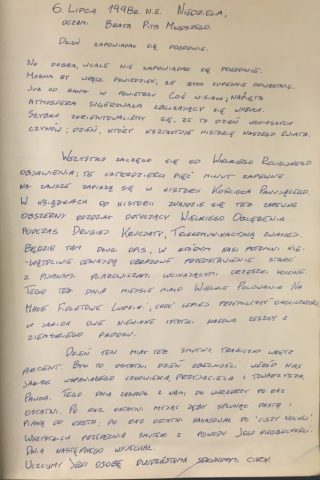 6. LIPCA 1998R. N.E. NIEDZIELA,
OCZAMI BRATA PITA MŁODSZEGO.
DZIEŃ ZAPOWIADAŁ SIĘ POGODNIE.
NO DOBRA, WCALE NIE ZAPOWIADAŁ SIĘ POGODNIE.
MOŻNA BY WRĘCZ POWIEDZIEĆ, ŻE BYŁO ZUPEŁNIE ODWROTNIE.
JUŻ OD RANA W POWIETRZU COŚ WISIAŁO; NAPIĘTA
ATMOSFERA SUGEROWAŁA ZBLIŻAJĄCY SIĘ WYROK.
SZYBKO ZORIENTOWALIŚMY SIĘ, ŻE TO DZIEŃ WZNIOSŁYCH
CZYNÓW; DZIEŃ, KTÓRY KSZTAŁTUJE HISTORIĘ NASZEGO ŚWIATA.
WSZYSTKO ZACZĘŁO SIĘ OD WIELKIEGO RELIGIJNEGO
OBJAWIENIA; TE CZTERDZIEŚCI PIĘĆ MINUT ZAPEWNE
NA ZAWSZE ZAPISZĄ SIĘ W HISTORII KOŚCIOŁA PANUJĄCEGO.
W KSIĄŻKACH OD HISTORII ZNAJDZIE SIĘ TEŻ ZAPEWNE
OBSZERNY ROZDZIAŁ DOTYCZĄCY WIELKIEGO OBLĘŻENIA
PODCZAS DRUGIEJ KRUCJATY, TELEKOMUNIKACYJNĄ ZWANEJ.
BĘDZIE TAM DŁUGI OPIS, W KTÓRYM NASI POTOMNI NIE-
WĄTPLIWIE ODNAJDĄ OBRAZOWE PRZEDSTAWIENIE STARĆ
Z PIJANYMI PLAŻOWICZAMI WCINAJĄCYMI ORZESZKI SOLONE.
TEGO TEŻ DNIA MIEJSCE MIAŁO WIELKIE POLOWANIE NA
MAŁE FIOLETOWE LUDZIKI, CHOĆ LEPIEJ PRZEMILCZEĆ OKOLICZNOŚCI
W JAKICH OWE NIEWINNE ISTOTKI MASOWO ZESZŁY Z
ZIEMSKIEGO PADOŁU.
DZIEŃ TEN MIAŁ TEŻ SMUTNY, TRAGICZNY WRĘCZ
AKCENT. BYŁ TO OSTATNI DZIEŃ OBECNOŚCI WŚRÓD NAS
JAKŻE WSPANIAŁEGO CZŁOWIEKA, PRZYJACIELA I TOWARZYSZA,
PAWŁA. TEGO DNIA ZASIADŁ Z NAMI DO WIECZERZY PO RAZ
OSTATNI. PO RAZ OSTATNI MYJĄC ZĘBY SPLUNĄŁ PASTĄ I
PIANĄ DO KRETA; PO RAZ OSTATNI HAŁASOWAŁ PO "CISZY NOCNEJ".
WSZYSTKICH PRZEPEŁNIA SMUTEK Z POWODU JEGO NIEOBECNOŚCI.
DNIA NASTĘPNEGO WYJECHAŁ.
UCZCIJMY JEGO OSOBĘ DWUDZIESTOMA SEKUNDAMI CISZY.